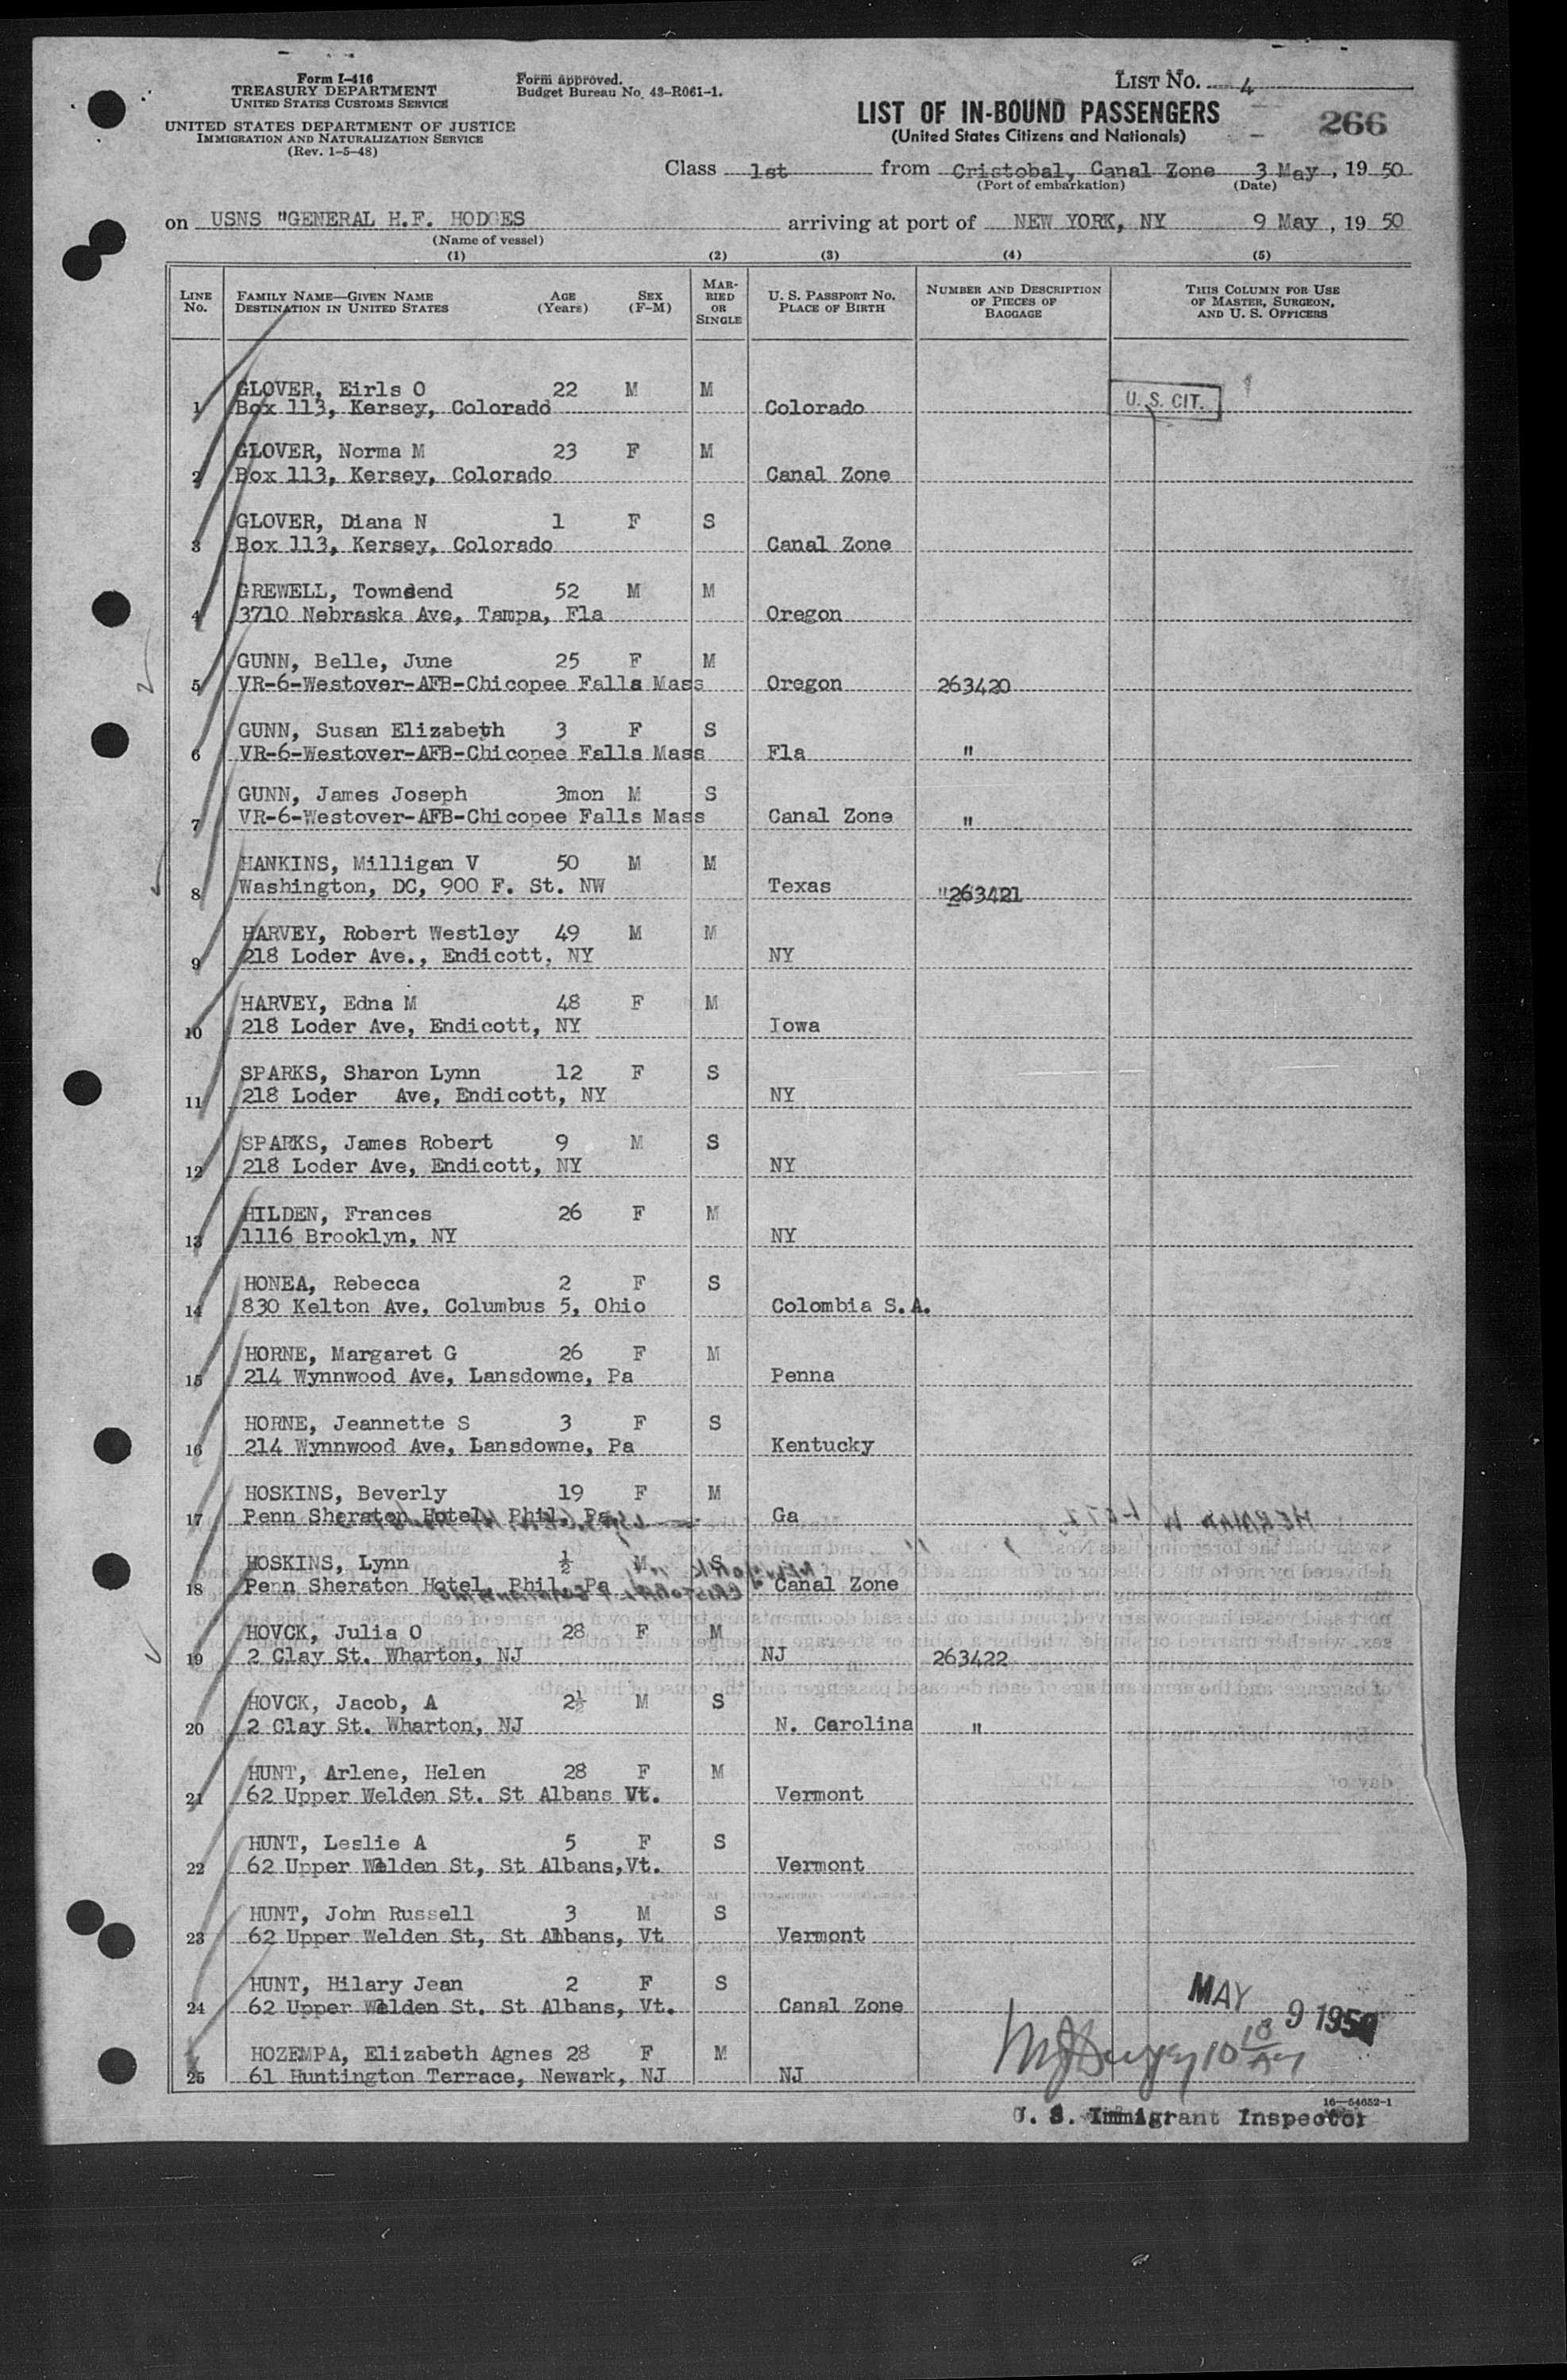 Form I-416
TREASURY DEPARTMENT
UNITED STATES CUSTOMS SERVICE
UNITED STATES DEPARTMENT OF JUSTICE
IMMIGRATION AND NATURALIZATION SERVICE
(Rev. 1-5-48)
Form approved.
Budget Bureau No. 43-R061-1.
LIST NO. 4
LIST OF IN-BOUND PASSENGERS
(United States Citizens and Nationals)
266
Class 1st from Cristobal, Canal Zone 3 May, 1950
(Port of embarkation) (Date)
on USNS "GENERAL H.F. HODGES arriving at port of NEW YORK, NY 9 May, 1950
(Name of vessel)
(1) (2) (3) (4) (5)
LINE No. FAMILY NAME—GIVEN NAME DESTINATION IN UNITED STATES AGE (Years) SEX (F-M) MARRIED OR SINGLE U. S. PASSPORT NO. PLACE OF BIRTH NUMBER AND DESCRIPTION OF PIECES OF BAGGAGE THIS COLUMN FOR USE OF MASTER, SURGEON, AND U. S. OFFICERS
GLOVER, Eirls O 22 M M
1 Box 113, Kersey, Colorado Colorado U. S. CIT.
GLOVER, Norma M 23 F M
2 Box 113, Kersey, Colorado Canal Zone
GLOVER, Diana N 1 F S
3 Box 113, Kersey, Colorado Canal Zone
GREWELL, Townsend 52 M M
4 3710 Nebraska Ave, Tampa, Fla Oregon
GUNN, Belle, June 25 F M
5 VR-6-Westover-AFB-Chicopee Falls Mass Oregon 263420
GUNN, Susan Elizabeth 3 F S
6 VR-6-Westover-AFB-Chicopee Falls Mass Fla "
GUNN, James Joseph 3mon M S
7 VR-6-Westover-AFB-Chicopee Falls Mass Canal Zone "
HANKINS, Milligan V 50 M M
8 Washington, DC, 900 F. St. NW Texas "263421
HARVEY, Robert Westley 49 M M
9 218 Loder Ave., Endicott, NY NY
HARVEY, Edna M 48 F M
10 218 Loder Ave, Endicott, NY Iowa
SPARKS, Sharon Lynn 12 F S
11 218 Loder Ave, Endicott, NY NY
SPARKS, James Robert 9 M S
12 218 Loder Ave, Endicott, NY NY
HILDEN, Frances 26 F M
13 1116 Brooklyn, NY NY
HONEA, Rebecca 2 F S
14 830 Kelton Ave, Columbus 5, Ohio Colombia S.A.
HORNE, Margaret G 26 F M
15 214 Wynnwood Ave, Lansdowne, Pa Penna
HORNE, Jeannette S 3 F S
16 214 Wynnwood Ave, Lansdowne, Pa Kentucky
HOSKINS, Beverly 19 F M
17 Penn Sheraton Hotel, Phil, Pa Ga
HOSKINS, Lynn ½ M S
18 Penn Sheraton Hotel, Phil, Pa Canal Zone
HOVCK, Julia O 28 F M
19 2 Clay St. Wharton, NJ NJ 263422
HOVCK, Jacob, A 2½ M S
20 2 Clay St. Wharton, NJ N. Carolina "
HUNT, Arlene, Helen 28 F M
21 62 Upper Welden St. St Albans Vt. Vermont
HUNT, Leslie A 5 F S
22 62 Upper Welden St, St Albans, Vt. Vermont
HUNT, John Russell 3 M S
23 62 Upper Welden St, St Albans, Vt Vermont
HUNT, Hilary Jean 2 F S
24 62 Upper Welden St. St Albans, Vt. Canal Zone
MAY 9 1950
HOZEMPA, Elizabeth Agnes 28 F M
25 61 Huntington Terrace, Newark, NJ NJ
16—54652-1
U. S. Immigrant Inspector